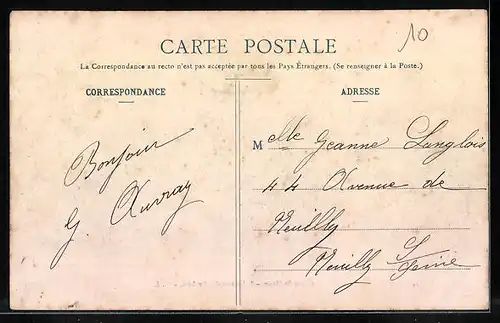 10
CARTE POSTALE
La Correspondance au recto n'est pas acceptée par tous les Pays Étrangers. (Se renseigner à la Poste.)
CORRESPONDANCE
ADRESSE
Bonjour
G. Auvray
Melle Jeanne Langlois
44 Avenue de
Neuilly
Neuilly S/ Seine